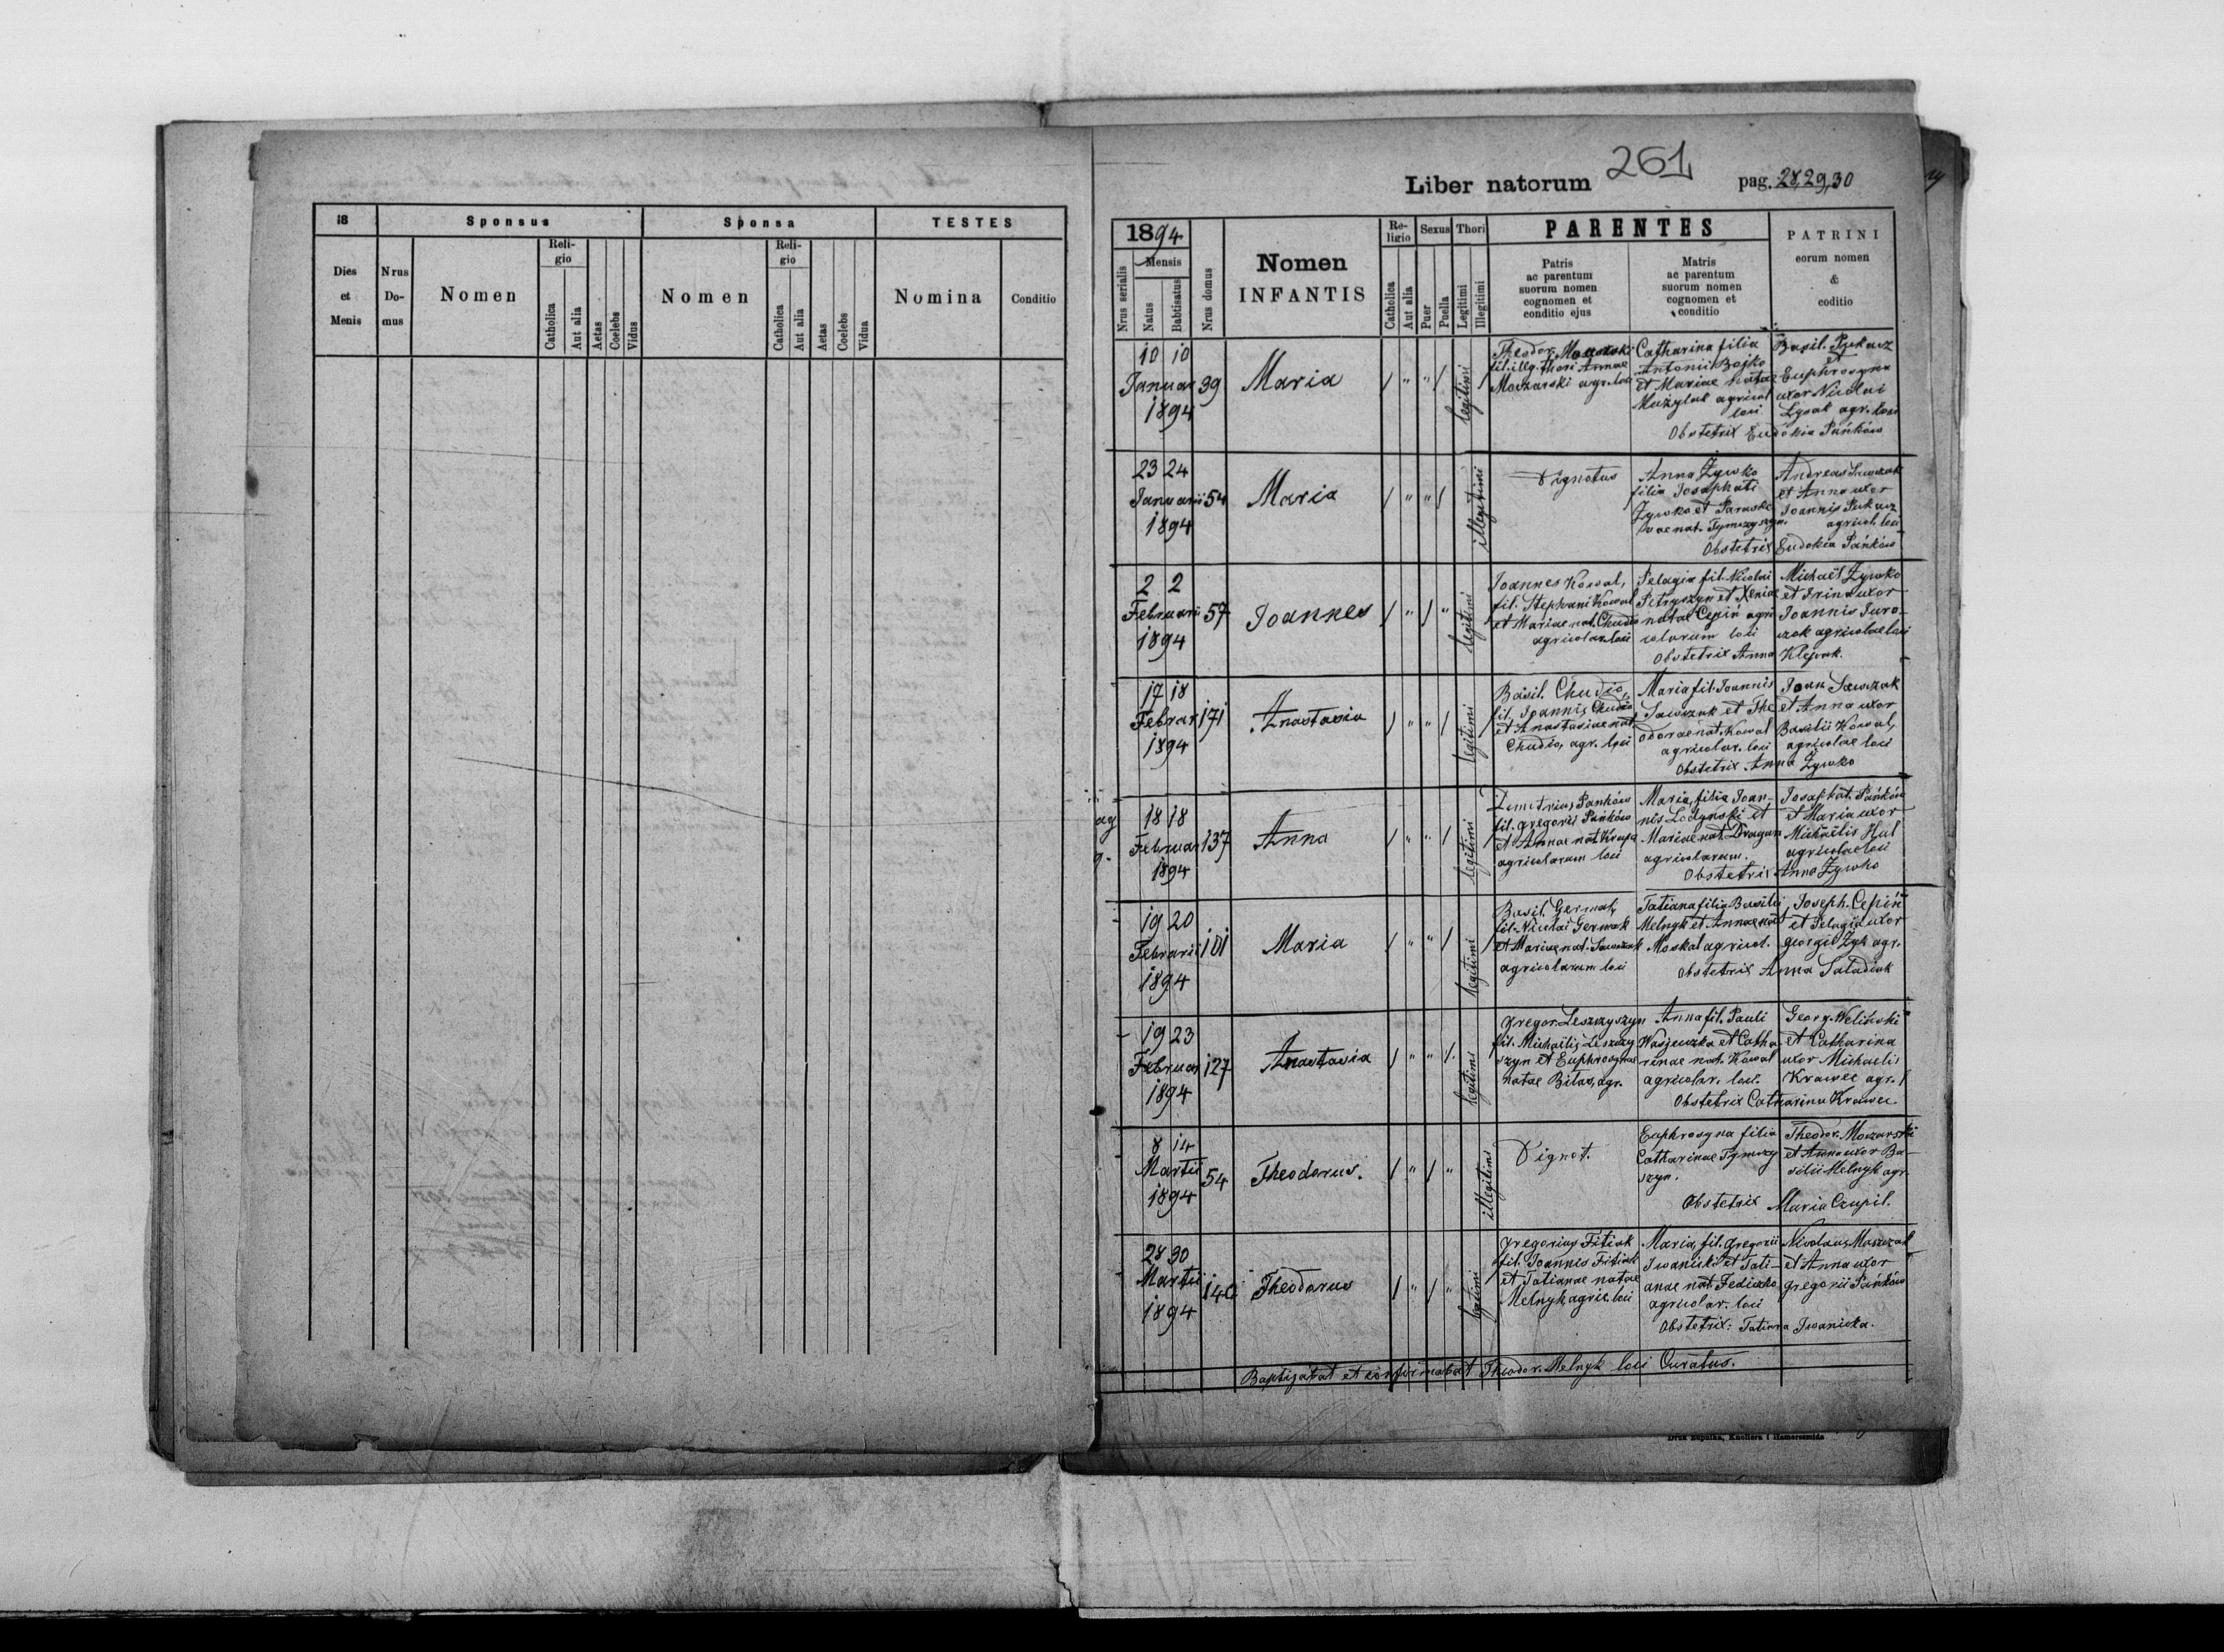 18
Sponsus
Sponsa
TESTES
Dies et Menis
Nrus Do- mus
Nomen
Reli- gio
Catholica
Aut alia
Aetas
Coelebs
Vidus
Nomen
Reli- gio
Catholica
Aut alia
Aetas
Coelebs
Vidua
Nomina
Conditio
261
Liber natorum
pag. 28,29,30
1894
Mensis
Nrus serialis
Natus
Babtisatus
Nrus domus
Nomen
INFANTIS
Re- ligio
Catholica
Aut alia
Sexus
Puer
Puella
Thori
Legitimi
Illegitimi
PARENTES
Patris
ac parentum
suorum nomen
cognomen et
conditio ejus
Matris
ac parentum
suorum nomen
cognomen et
conditio
PATRINI
eorum nomen
&
coditio
10 10
Januar
1894
39
Maria
legitimi
Theodor. Moczarski
fil. illeg. thori Annae
Moczarski agr. loci
Catharina filia
Antonii Bojko
et Mariae natae
Mużylak agricol
loci
Basil. Pukacz
et
Euphrosyna
uxor Nicolai
Lysak agr. loci
Obstetrix Eudokia Pańków
23 24
Januarii
1894
54
Maria
illegitimi
Ignotus
Anna Żywko
filia Josaphati
Żywko et Paraske
vae nat. Tymczyszyn.
Andreas Sawczak
et Anna uxor
Joannis Pukacz
agricol. loci
Obstetrix Eudokia Pańków
2 2
Februarii
1894
57
Joannes
legitimi
Joannes Kowal,
fil. Stephani Kowal
et Mariae nat. Chudio
agricolar. loci
Pelagia fil. Nicolai
Petryszyn et Xeniae
natae Cepiń agri
colarum loci
Michaël Żywko
et Irina uxor
Joannis Juro-
czak agricolae loci
Obstetrix Anna Klepak.
17 18
Februar
1894
171
Anastasia
legitimi
Basil. Chudio,
fil. Joannis Chudio
et Anastasiae nat.
Chudio, agr. loci
Maria fil. Joannis
Sawczak et The
odorae nat. Kowal
agricolar. loci
Joan Sawczak
et Anna uxor
Basilii Kowal,
agricolae loci
Obstetrix Anna Żywko
18 18
Februar
1894
137
Anna
legitimi
Demetrius Pańków
fil. Gregorii Pańków
et Annae nat. Krupa
agricolarum loci
Maria, filia Joan-
nis Lodyński et
Mariae nat. Dragan
agricolarum.
Josaphat. Pańków
et Maria uxor
Michaëlis Hul
agricolae loci
Obstetrix Anna Żywko
19 20
Februarii
1894
101
Maria
legitimi
Basil. Germak,
fil. Nicolai Germak
et Mariae nat. Sawczak
agricolarum loci
Tatiana filia Basilii
Melnyk et Annae nat
Moskal agricol.
Joseph. Cepiń
et Pelagia uxor
Georgii Zyk agr.
Obstetrix Anna Saladiak
19 23
Februar
1894
127
Anastasia
legitimi
Gregor. Leszczyszyn
fil. Michaëlis Leszczy
szyn et Euphrosynae
natae Bilas, agr.
Anna fil. Pauli
et Catha
rinae nat. Kowal
agricolar. loci.
Georg. Welihski
et Catharina
uxor Michaelis
Krawec agr.
Obstetrix Catharina Krawec.
8 14
Martii
1894
54
Theodorus.
illegitimi
Ignot.
Euphrosyna filia
Catharinae Tymczy
szyn.
Theodor. Moczarski
et Anna uxor Ba-
silii Melnyk agr.
Obstetrix Maria Czupil.
28 30
Martii
1894
140
Theodorus
legitimi
Gregorius Fitiak
fil. Joannis Fitiak
et Tatianae natae
Melnyk agric. loci
Maria, fil. Gregorii
Iwanicki et Tati-
anae nat. Fediczko
agricolar. loci
Nicolaus Moszczak
et Anna uxor
Gregorii Pańków
Obstetrix: Tatiana Iwanicka.
Baptizabat et confirmabat Theodor. Melnyk loci Curatus.